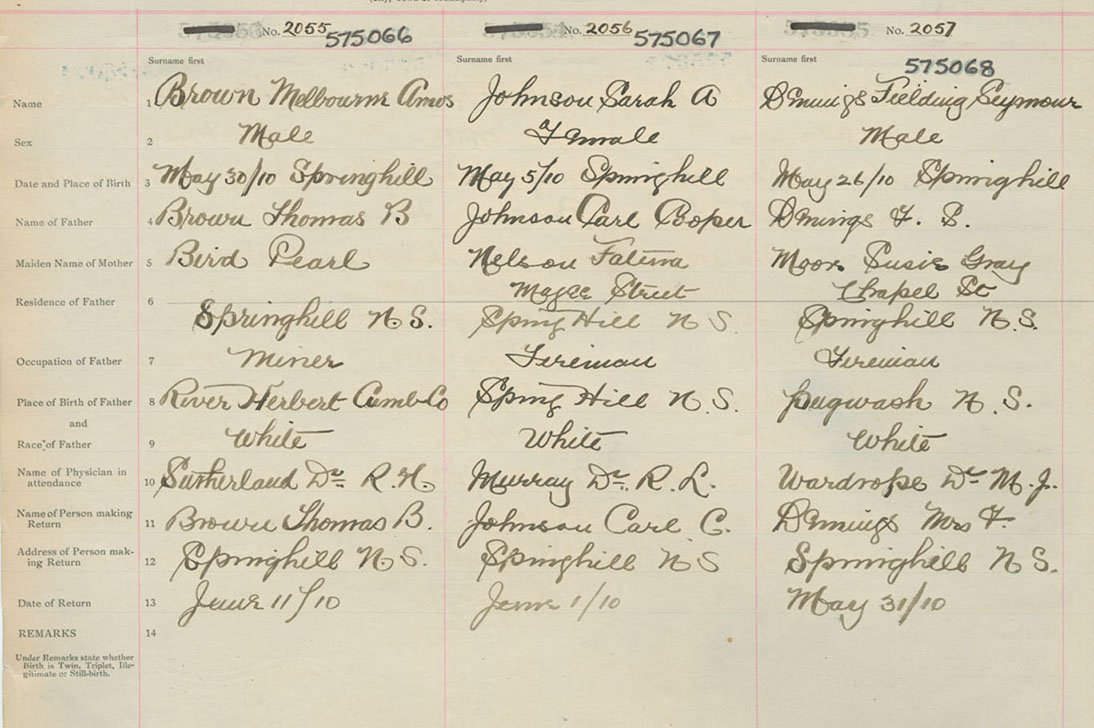 No. 2055 575066 No. 2056 575067 No. 2057
Surname first Surname first Surname first 575068
Name 1 Brown Melbourne Amos Johnson Sarah A Demings Fielding Seymour
Sex 2 Male Female Male
Date and Place of Birth 3 May 30/10 Springhill May 5/10 Springhill May 26/10 Springhill
Name of Father 4 Brown Thomas B Johnson Carl Demings F. S.
Maiden Name of Mother 5 Bird Pearl Nelson Fatima Moore Susie Gray
Street Chapel St
Residence of Father 6
Springhill N.S. Spring Hill N S. Springhill N.S.
Occupation of Father 7 Miner Fireman Fireman
Place of Birth of Father 8 River Herbert Cumb Co Spring Hill N.S. Pugwash N.S.
and
Race of Father 9 White White White
Name of Physician in
attendance 10 Sutherland Dr. R. H. Murray Dr. R. L. Wardrope Dr M. J.
Name of Person making
Return 11 Brown Thomas B. Johnson Carl C. Demings Mrs F.
Address of Person mak-
ing Return 12 Springhill N S. Springhill N S Springhill N S.
Date of Return 13 June 11/10 June 1/10 May 31/10
REMARKS 14
Under Remarks state whether
Birth is Twin, Triplet, Ille-
gitimate or Still-birth.